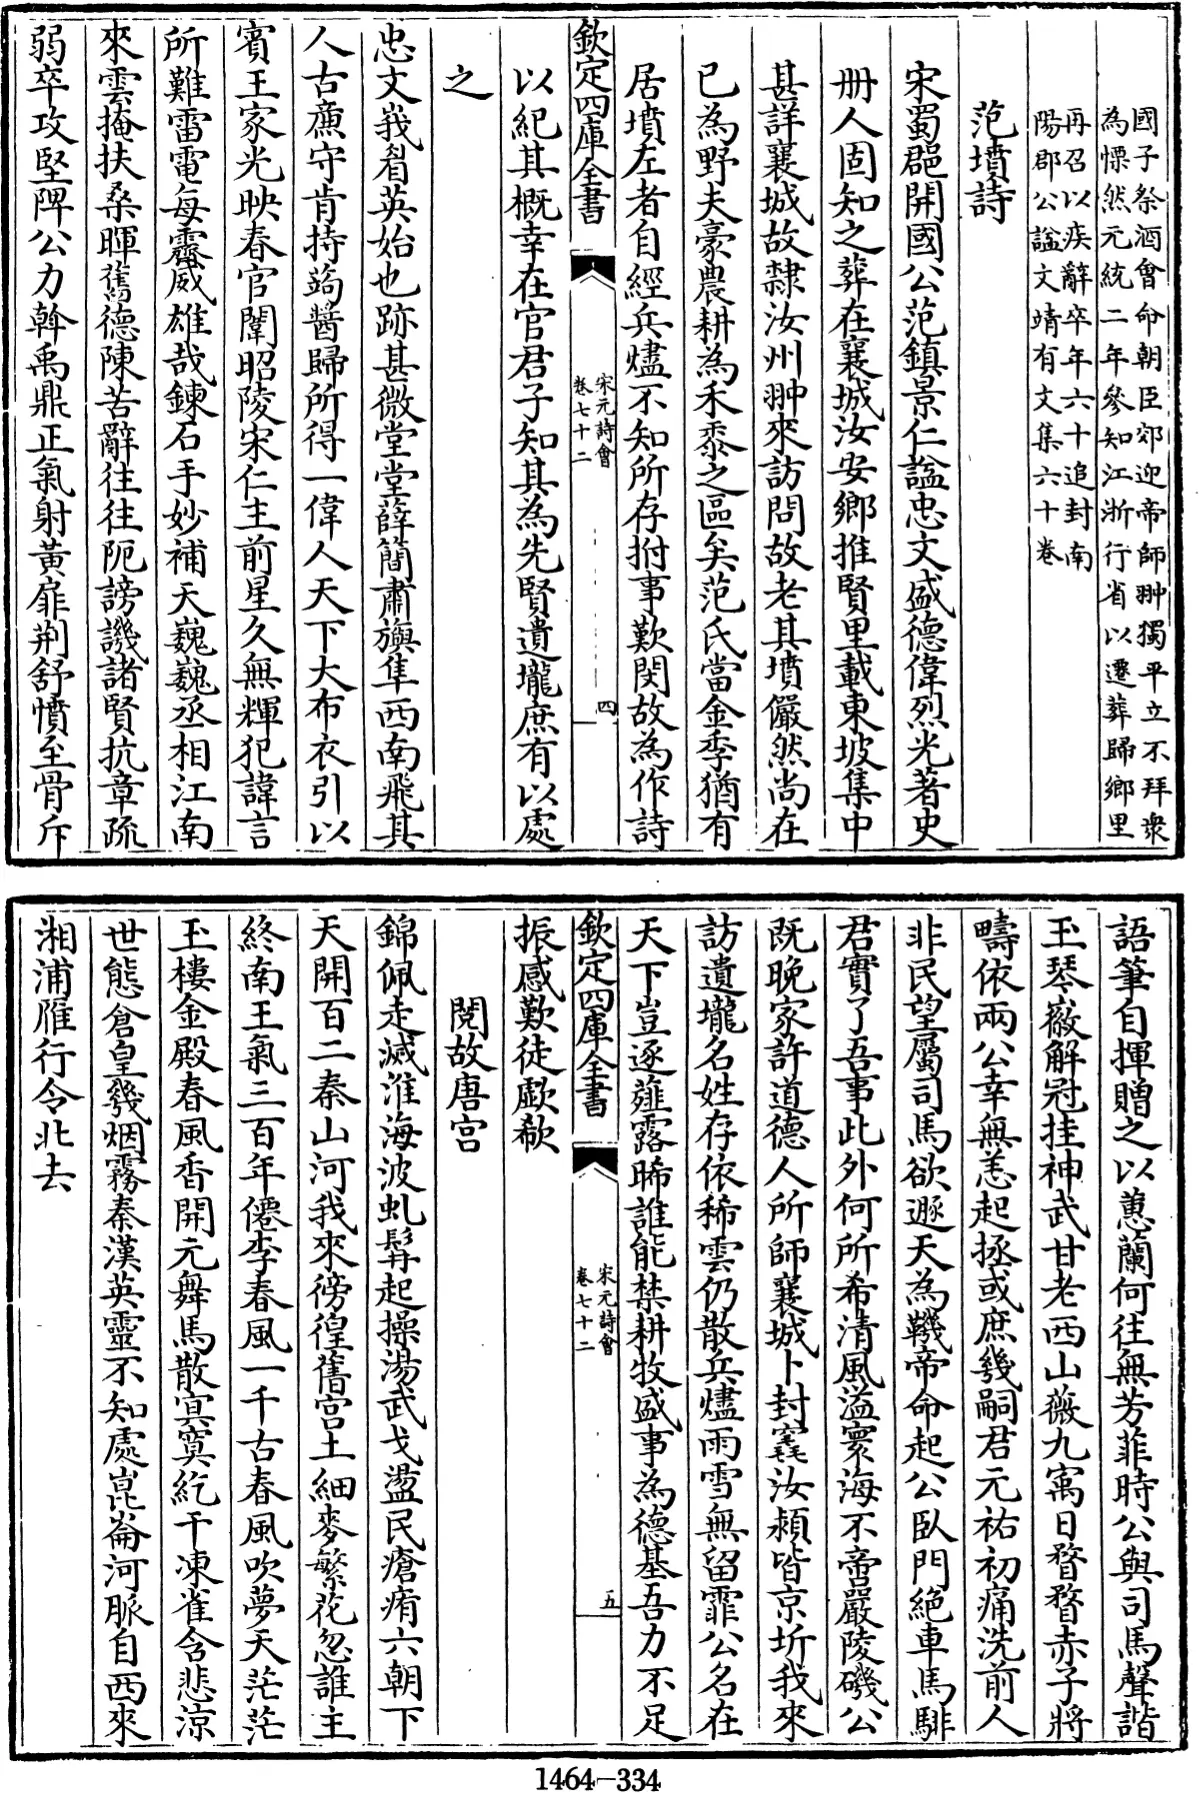 國子祭酒會命朝臣郊迎帝師翀獨平立不拜衆
為慄然元統二年參知江浙行省以遷葬歸鄉里
再召以疾辭卒年六十追封南
陽郡公諡文靖有文集六十卷
范墳詩
宋蜀郡開國公范鎮景仁諡忠文盛德偉烈光著史
册人固知之葬在襄城汝安鄉推賢里載東坡集中
甚詳襄城故隸汝州翀來訪問故老其墳儼然尚在
已為野夫豪農耕為禾黍之區矣范氏當金季猶有
居墳左者自經兵燼不知所存拊事歎閔故為作詩
欽定四庫全書
宋元詩會
卷七十二
四
以紀其概幸在官君子知其為先賢遺壠庶有以處
之
忠文峩眉英始也跡甚微堂堂薛簡肅旟隼西南飛其
人古廉守肯持蒟醬歸所得一偉人天下大布衣引以
賓王家光映春官闈昭陵宋仁主前星久無輝犯諱言
所難雷電每霽威雄哉鍊石手妙補天巍巍丞相江南
來雲掩扶桑暉舊德陳苦辭往往阨謗譏諸賢抗章疏
弱卒攻堅陴公力斡禹鼎正氣射黃扉荆舒憤至骨斥
語筆自揮贈之以蕙蘭何往無芳菲時公與司馬聲諧
玉琴徽解冠挂神武甘老西山薇九寓日瞀瞀赤子將
疇依兩公幸無恙起拯或庶幾嗣君元祐初痛洗前人
非民望屬司馬欲遯天為鞿帝命起公臥門絶車馬騑
君實了吾事此外何所希清風溢寰海不啻嚴陵磯公
既晚家許道德人所師襄城卜封窆汝潁皆京圻我來
訪遺壠名姓存依稀雲仍散兵燼雨雪無留霏公名在
天下豈逐薤露晞誰能禁耕牧盛事為德基吾力不足
欽定四庫全書
宋元詩會
卷七十二
五
振感歎徒歔欷
閲故唐宫
錦佩走滅淮海波虬髯起操湯武戈盪民瘡痏六朝下
天開百二秦山河我來徬徨舊宫土細麥繁花忽誰主
終南王氣三百年僊李春風一千古春風吹夢天茫茫
玉樓金殿春風香開元舞馬散寞寞紇干凍雀含悲涼
世態倉皇幾烟霧秦漢英靈不知處崑崙河脈自西來
湘浦雁行令北去
1464-334